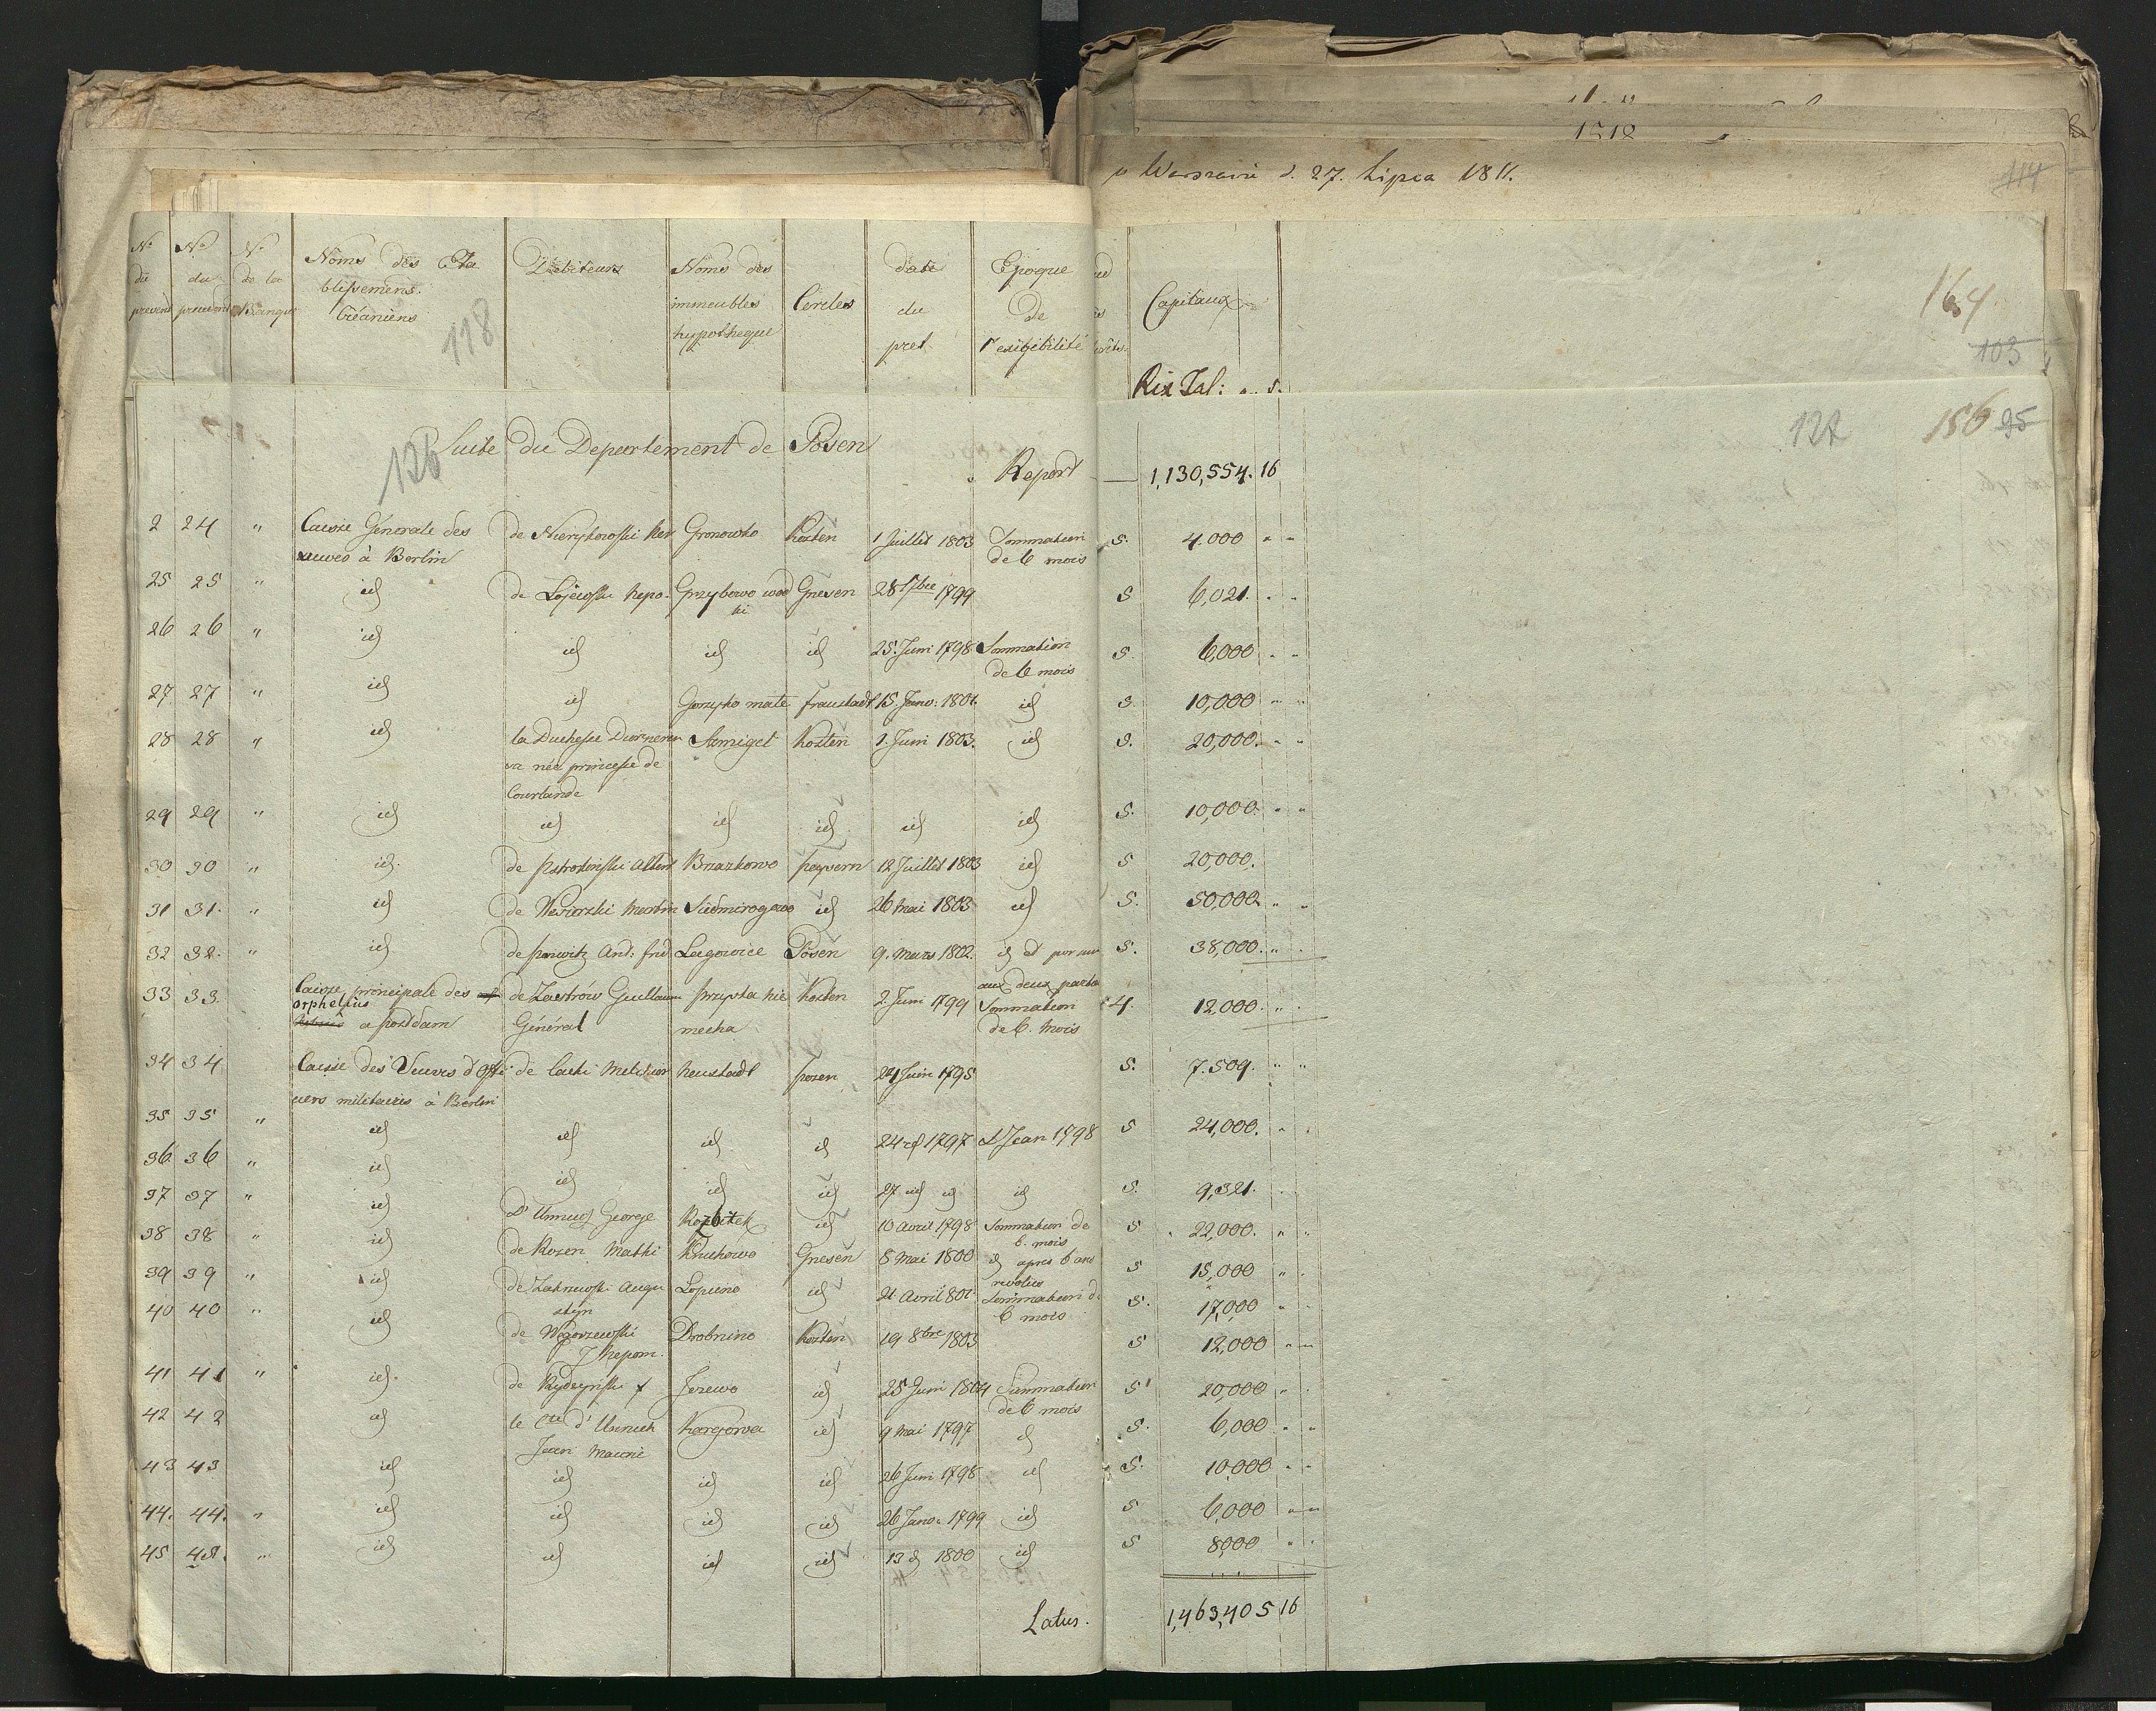 w Warszawie d. 27. Lipca 1811.
114
No du présent No du précédent No de la Banque Noms des Etablissemens Créanciers Débiteurs Noms des immeubles hypothequé Cercles date du pret Epoque de l'exigibilité Capitaux
118
164
103
Rix Tal:
Suite du Departement de Posen
126
127
156 95
Report 1,130,554. 16
2 24 " Caisse Génerale des veuves à Berlin de Nieryhowski Xav Gronowko Kosten 1 Juillet 1803 Sommation de 6 mois 5. 4.000 " "
25 25 " id de Lojewski Nepo. Grzybowo wod ki Gnesen 28 7bre 1799 5 6,021. " "
26 26 " id id id id 25 Juin 1798 Sommation de 6 mois 5 6,000 " "
27 27 " id id Goryko mate fraustadt 15 Janv: 1801. id 5. 10,000 " "
28 28 " id la Duchesse née princesse de Courlande Szmigel Kosten 1. Juin 1803. id 5. 20,000. " "
29 29 " id id id id id id 5. 10,000. " "
30 30 " id. de Albert Brazkowo peysern 12 Juillet 1803 id 5 20,000.
31 31. " id de Martin Siedmirogowo id 26 Mai 1803 id 5. 50,000 " "
32 32. " id. de And: fréd Lagowice Posen 9. Mars 1802. id et par aux deux partie 5. 38,000. " "
33 33. Caisse principale des orphelins a postdam de Zastrów Guillaum Général przysta nie mecha Kosten 2. Juin 1799 Sommation de 6. Mois 4. 12,000. " "
34 34 Caisse des Veuves d'Offi ciers militaires à Berlin de Lacki Melchior Neustadt posen 24 Juin 1795 5. 7.509. " "
35 35 " id id id id 24 id 1797 St Jean 1798 5 24,000. " "
36. 36 " id id id id 27 id id id 5. 9,321.
37 37 " id D'Unruh George Rozbitek id 10 avril 1798 Sommation de 6. mois 5 22,000. " "
38 38 " id de Rozen Mathi Kruchowo Gnesen 8 Mai 1800 id apres 6 ans revolus 5 15,000 " "
39 39 " id de Zakrzewski Augu styn Lopieno id 21 Avril 801. Sommation de 6 mois 5. 17,000 " "
40 40 " id de J Nepom. Drobnino Kosten 19 8bre 1803 5 12,000 " "
41 41 " id. de Rydzynski Jezewo id 25 Juin 1804 Sommation de 6 mois 5 20,000 " "
42 42 id le Cte d'Unruh Jean Maurie Kargowa id 9 Mai 1797 id 5. 6,000 " "
43 43 id id id id 26 Juin 1798 id 5. 10,000 " "
44. 44. " id id id id 26 Janv. 1799 id 5 6,000 " "
45 45. " id id id id 13 id 1800 id 5 8,000 " "
Latus. 1,463,405 16